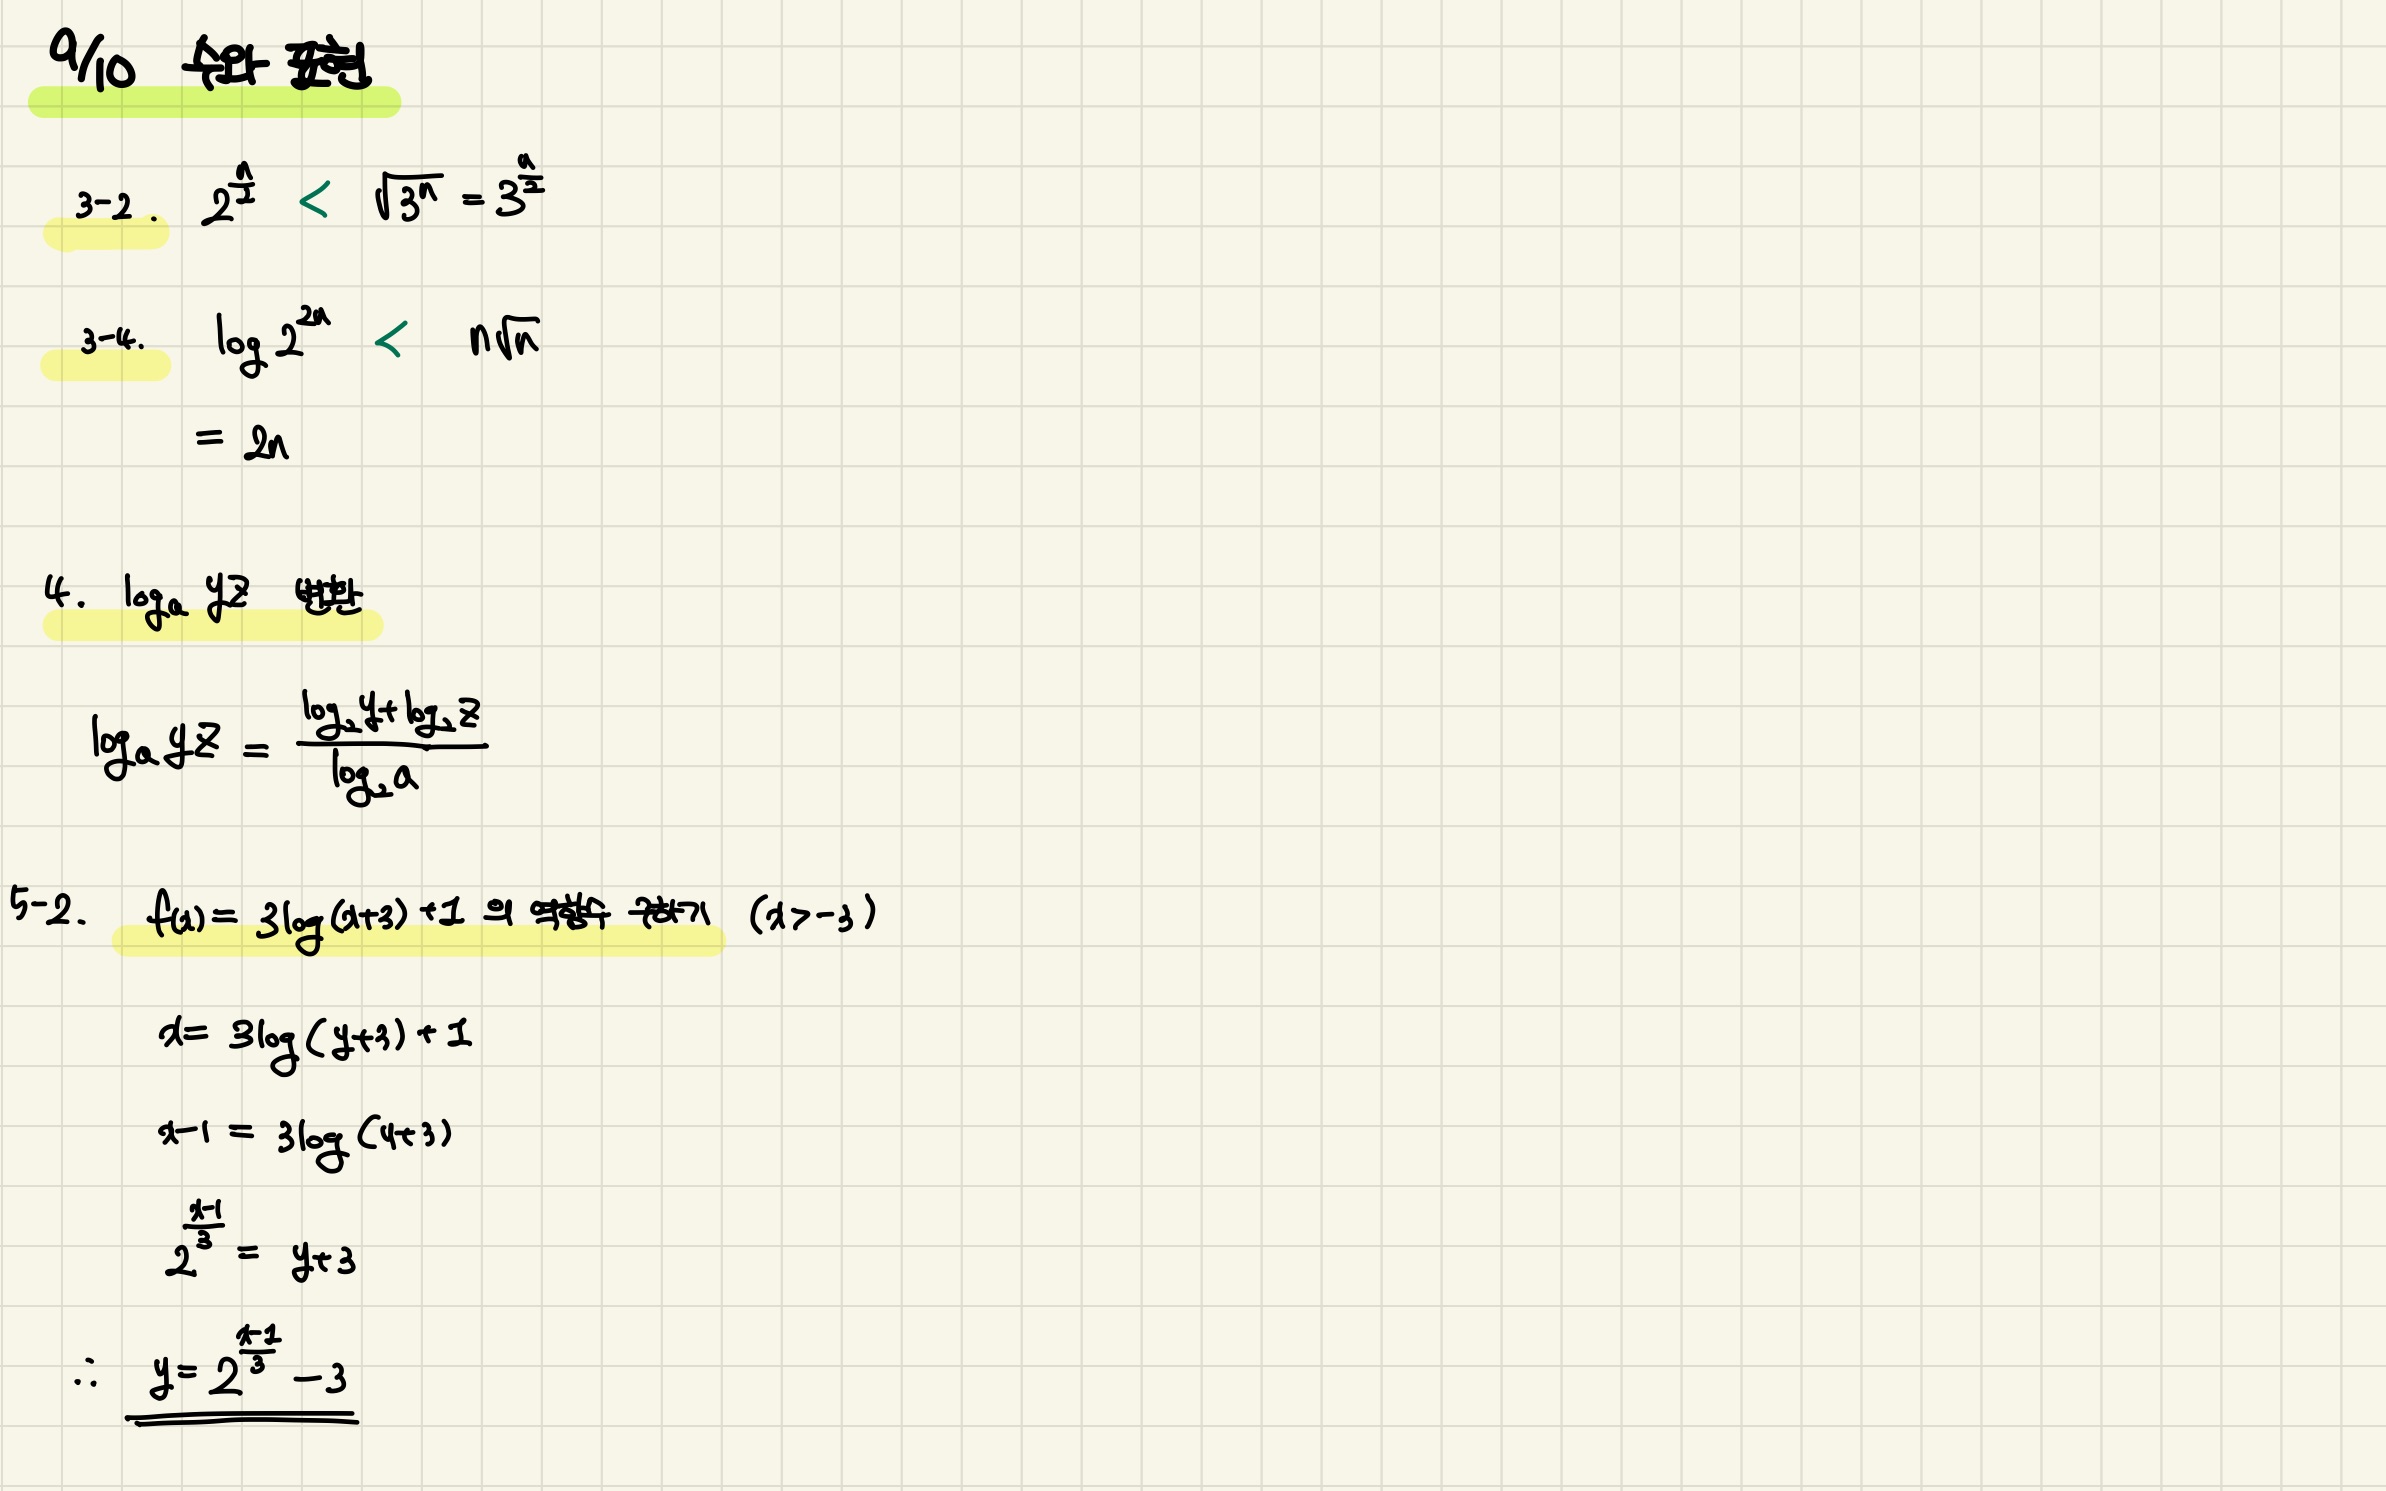 9/10 수업 퀴즈
3-2. 2^{n/2} < √(3^n) = 3^{n/2}
3-4. log 2^{2n} < n√n
= 2n
4. log_a yz
log_a yz = (log_2 y + log_2 z) / (log_2 a)
5-2. f(x) = 3log(x+3) + 1 의 역함수 구하기 (x > -3)
x = 3log(y+3) + 1
x-1 = 3log(y+3)
2^{(x-1)/3} = y+3
∴ y = 2^{(x-1)/3} - 3